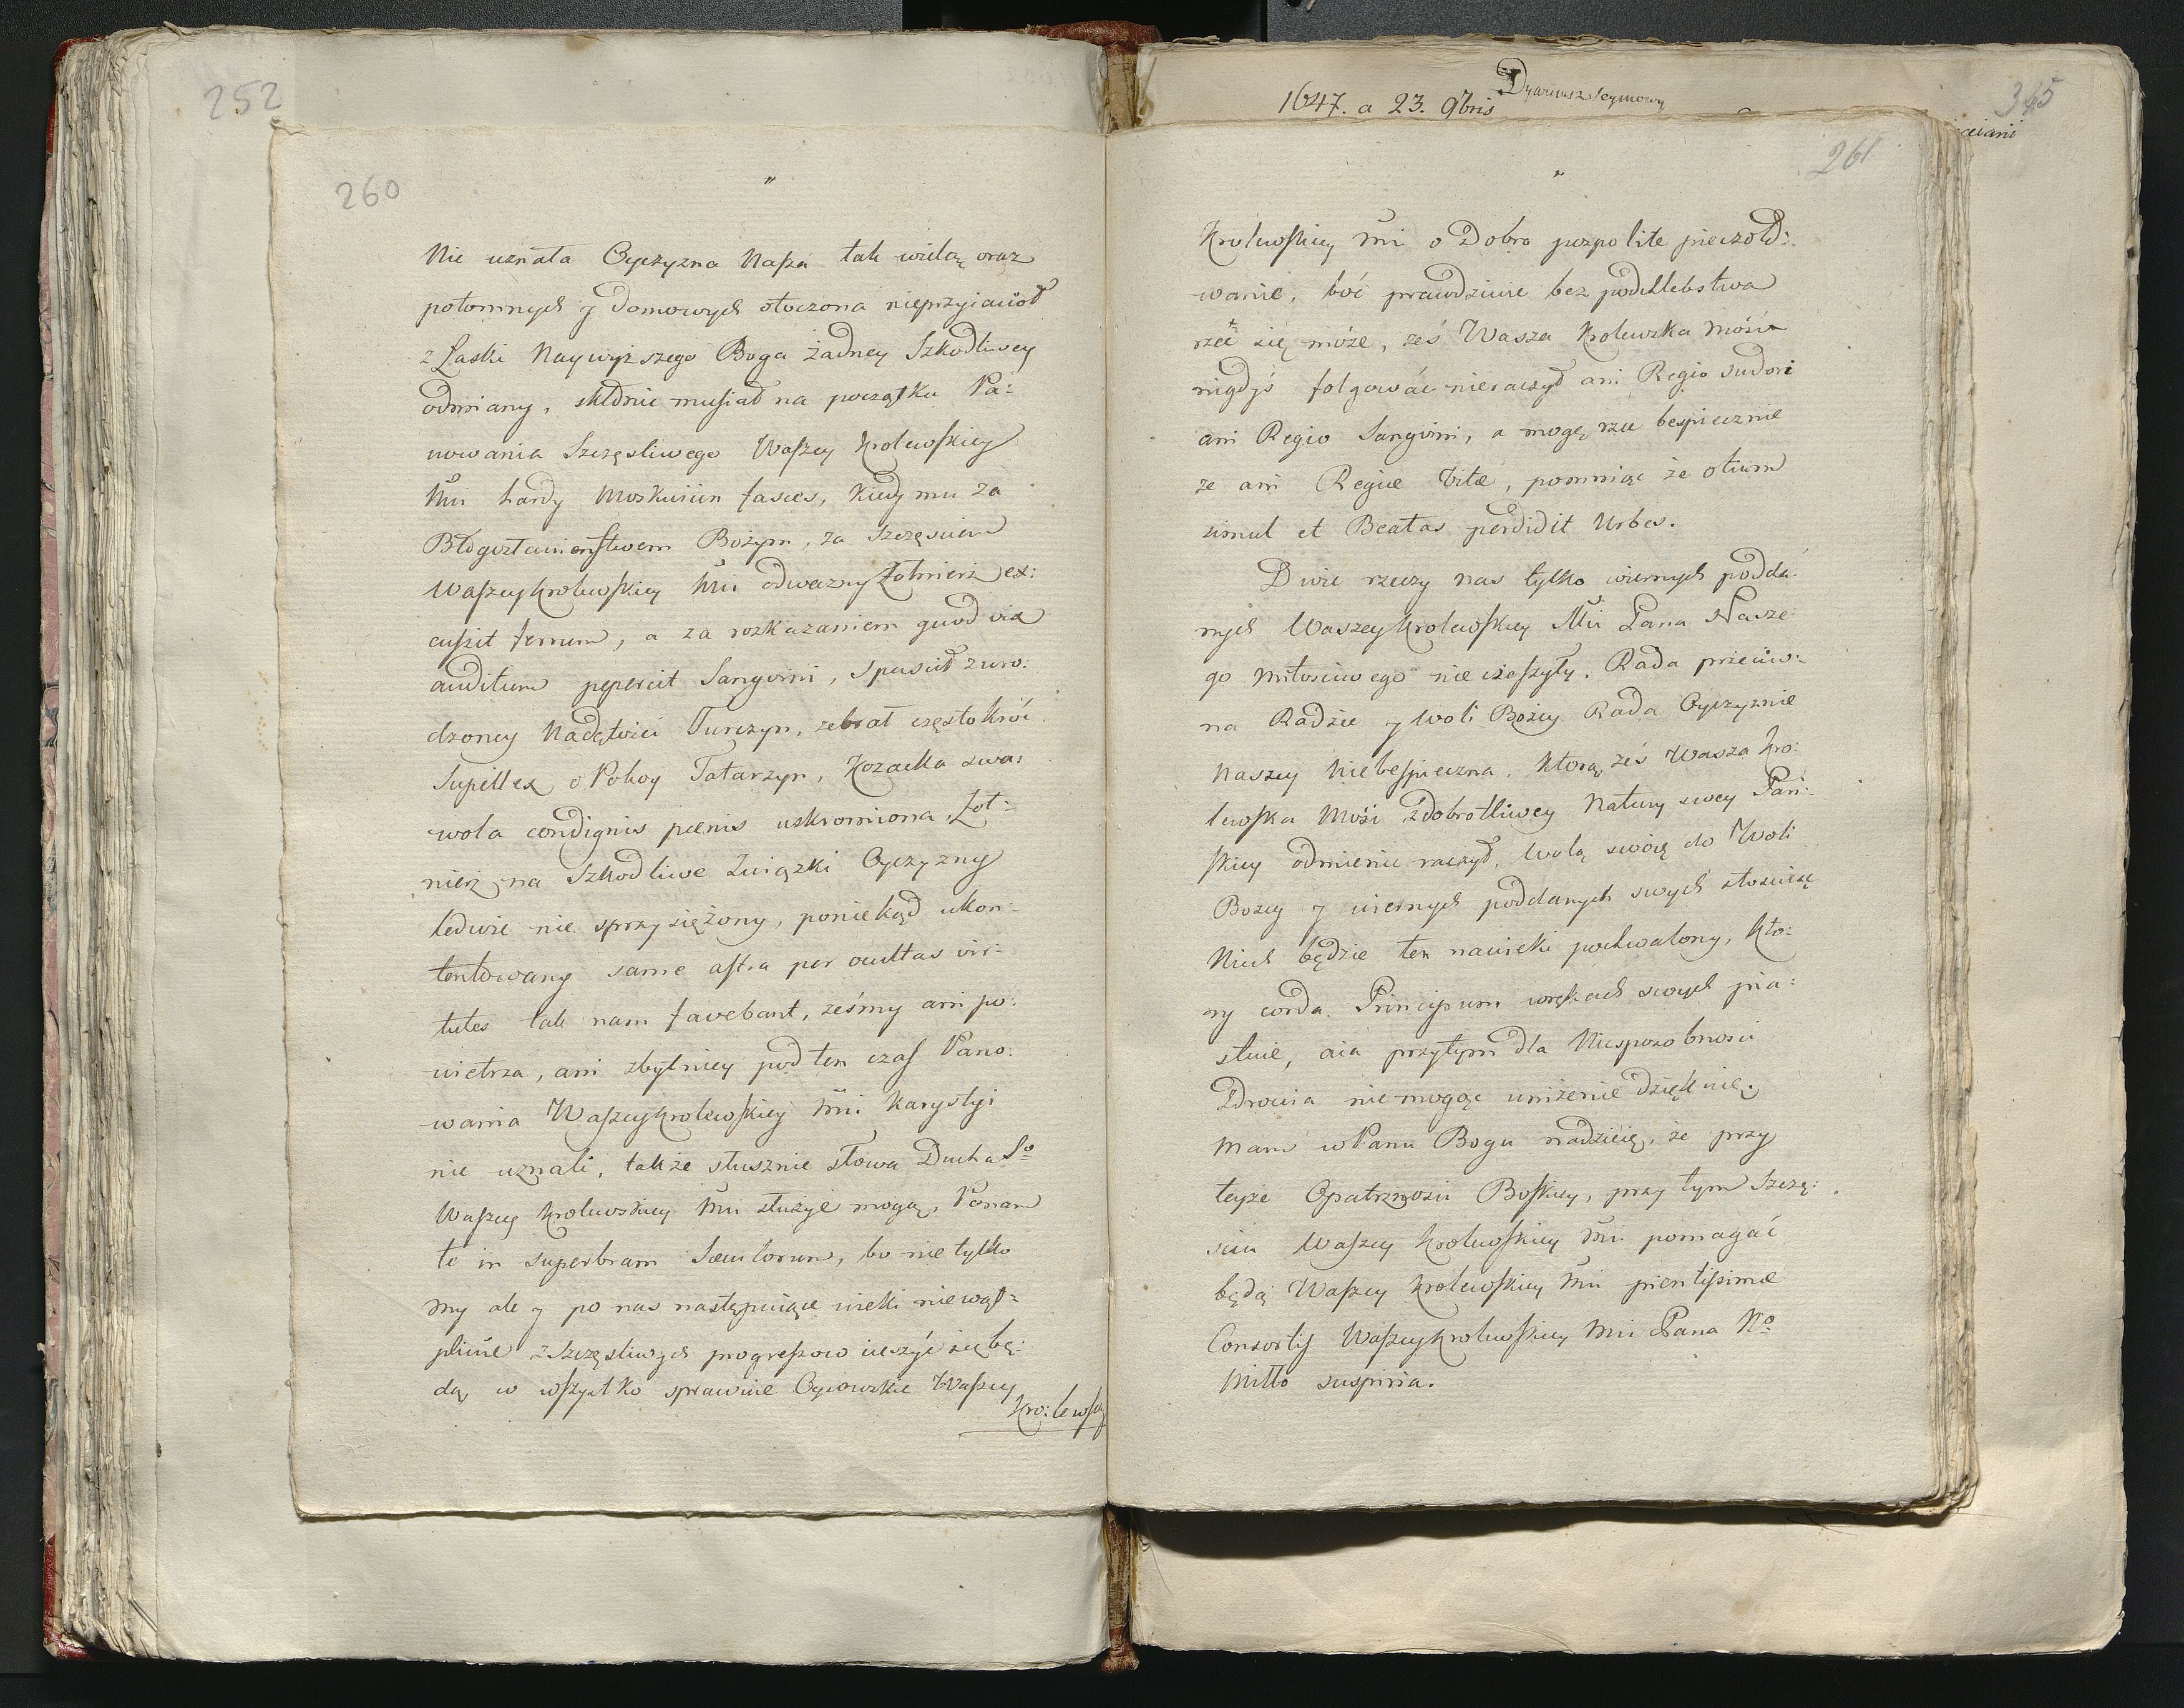 252
260
"
Nie uznała Oyczyzna Naſza tak wielą oraz
potomnych y domowych otoczona nieprzyiacioł
z Łaski Naywyższego Boga żadney Szkodliwey
odmiany, skłdnić muſiał na początku Pa:
nowania Szczęsliwego Waſzey Krolewſkiey
Mći hardy Moskwicin fasces, kiedy mu za
Błogosławienſtwem Bożym, za Szczęsciem
Waſzey Krolewſkiey Mći odwazny Żołnierz ex:
cuſsit ferrum, a za rozkazaniem quod vix
auditum pepercit Sangvini, Spuscił z wro:
dzoney Nadętości Turczyn, żebrał częstokróć
Supellex o Pokoy Tatarzyn, Kozacka swa:
wola condignis pœnis uskromiona, Żoł:
nierz na Szkodliwe Związki Oyczyzny
ledwie nie sprzysiężony, poniekąd ukon:
tentowany same aſtra per ocultas vir:
tutes tak nam favebant, żeśmy ani po:
wietrza, ani zbytniey pod ten czaſ Pano:
wania Waſzey Krolewſkiey Mći Karystyi
nie uznali, także słusznie słowa Ducha Sº
Waſzey Krolewskiey Mći służyć mogą, Ponam
te in superbiam Sæculorum, bo nie tylko
my ale y po nas następuiące wieki niewąt:
pliwie z Szczęsliwych progreſsow cieszyć się bę:
dą w wſzystko sprawnie Oycowskie Waſzey
Kro:lewſk
1647. a 23. 9bris
Dyariusz Seymowy
345
261
"
Krolewſkiey Mći o Dobro pospolite pieczoło:
wanie, bóć prawdziwie bez podchlebstwa
rzec się może, żeś Wasza Krolewska Mość
nigdyś folgowáć nieraczył ani Regio sudori
ani Regio Sangvini, a mogę rzec bespiecznie
że ani Regiæ Vitæ, pomniąc że otium
simul et Beatas perdidit Urbes.
Dwie rzeczy nas tylko wiernych poddá:
nych Waszey Krolewſkiey Mći Pana Nasze:
go Miłosciwego nie cieſzyły. Rada przeciw:
na Radzie y Woli Bożey Rada Oyczyznie
Naszey Niebeſpieczna, Ktorą żeś Wasza Kro:
lewſka Mość z dobrotliwey Natury swey Pań:
ſkiey odmienić raczył, Wolą swóię do Woli
Bozey y wiernych poddanych swych stosuiąc
Niech będzie ten nawieki pochwalony, Kto:
ry corda Principum w rękach swych pia:
stuie, aia przytym dla Niesposobności
Zdrowia nie mogąc uniżenie dziękuię.
Mam w Panu Bogu nadzieię, że przy
teyże Opatrznosci Boſkiey, przy tym Szczę:
sciu Waſzey Krolewſkiey Mći pomagáć
będą Waſzey Krolewſkiey Mći pientiſsimæ
Consortis Waſzey Krolewſkiey Mći Pana Nº
Mitto suspiria.